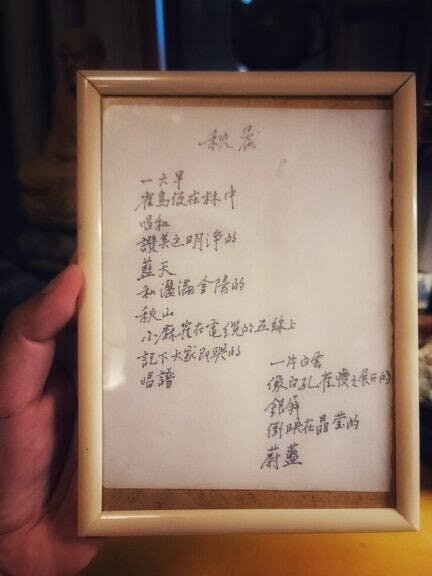 秋晨
一大早
雀鳥便在林中
唱和
讚美這明淨的
藍天
和灑滿金陽的
秋山
小麻雀在電纜的五線上
記下大家即興的
唱譜
一片白雲
像白孔雀慢慢展開的
銀屏
倒映在晶莹的
蔚藍